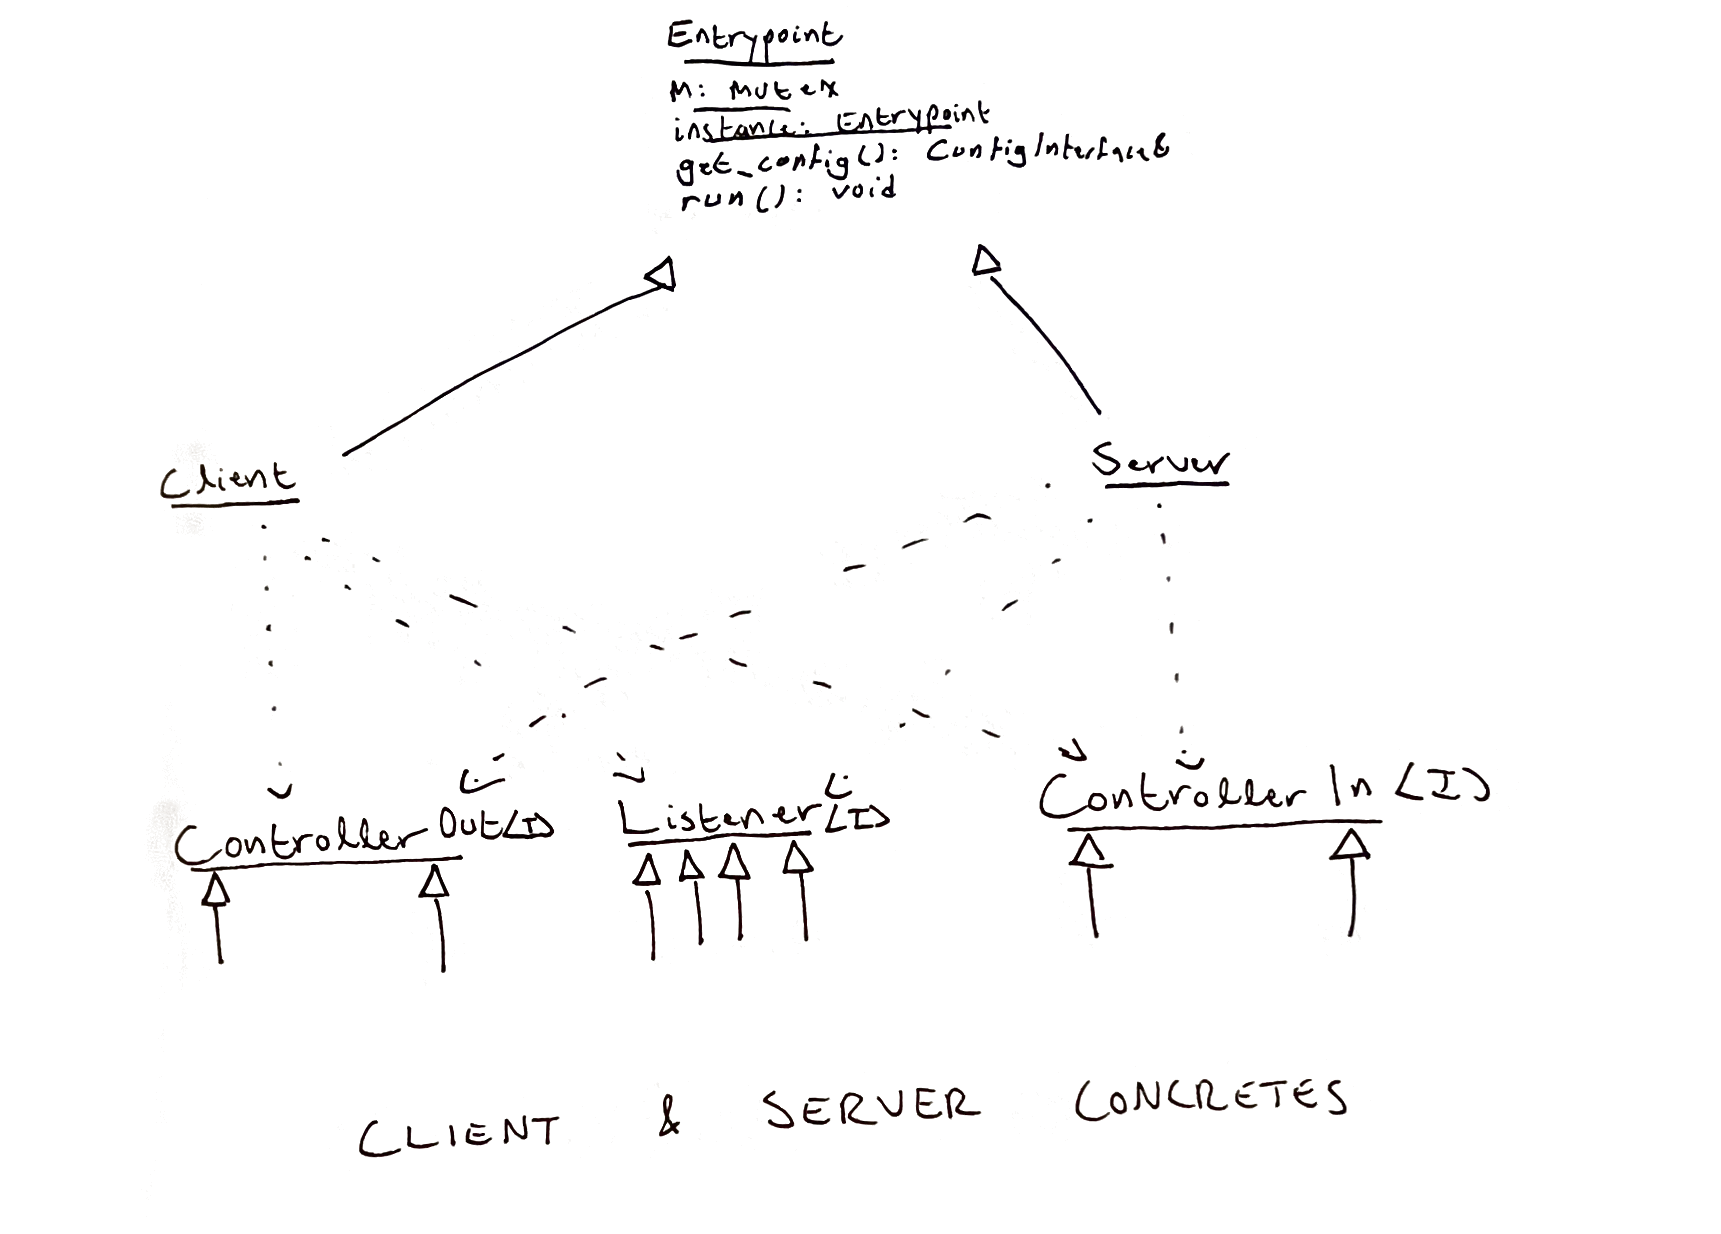 Entrypoint
M: Mutex
instance: Entrypoint
get_config(): ConfigInterface&
run(): void
Client
Server
ControllerOut<I>
Listener<I>
ControllerIn<I>
CLIENT & SERVER CONCRETES